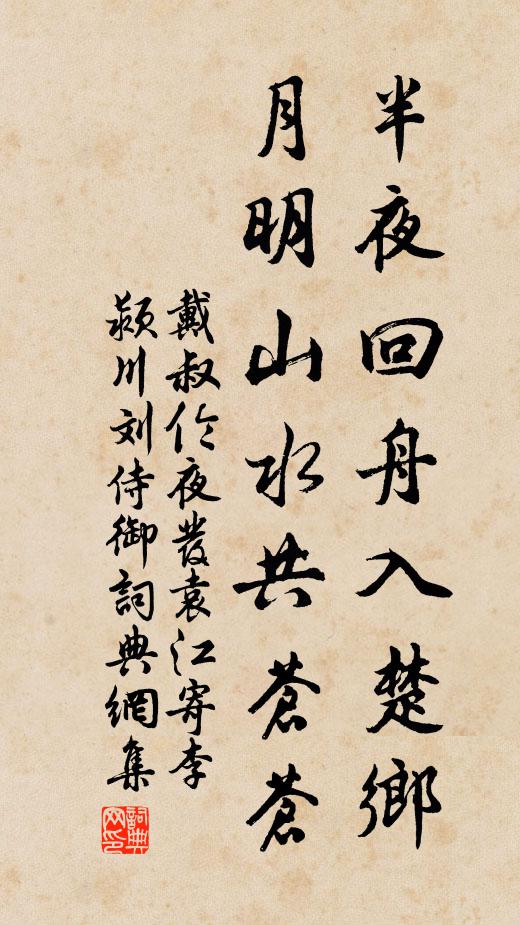 半夜回舟入楚鄉
月明山水共蒼蒼
戴叔伦夜發袁江寄李
颍川刘侍御詞典網集
詞典网印